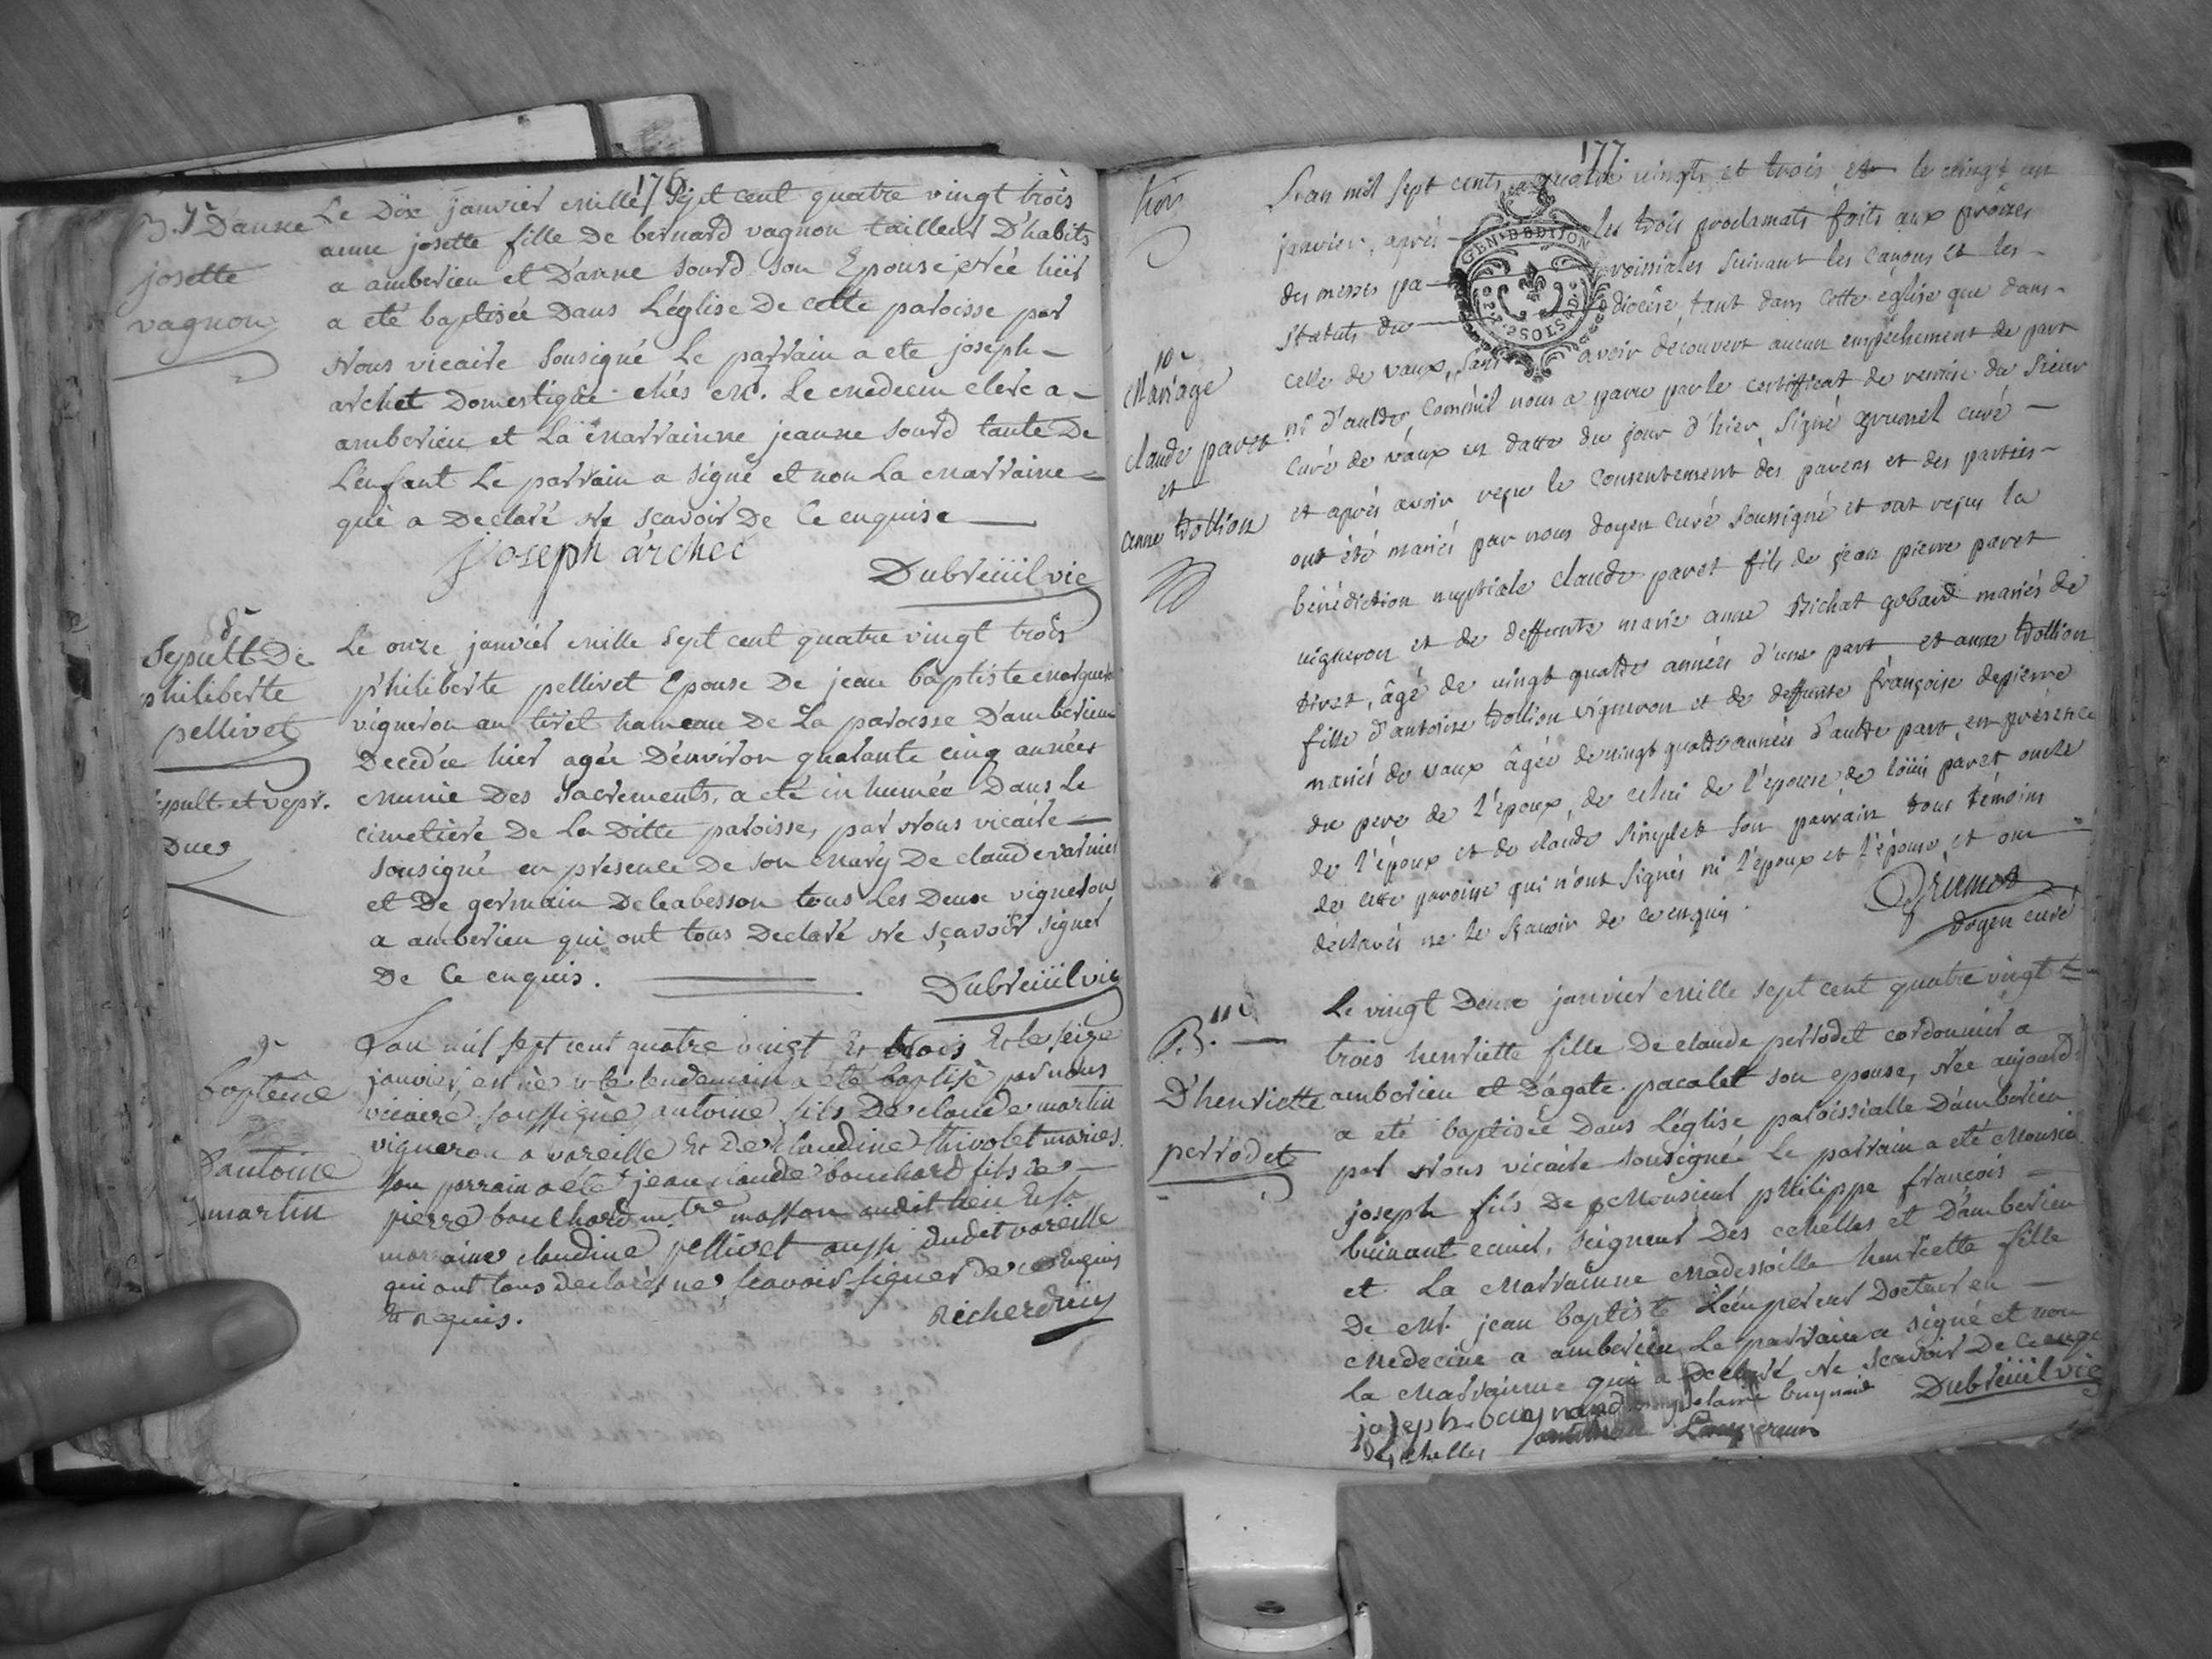 176
B. 7e D'anne
josette
vagnon
Le Dix janvier mille Sept cent quatre vingt trois
anne josette fille De bernard vagnon tailleur D'habits
a amberieu et D'anne sourd son Epouse, née hier
a eté baptisée Dans L'église De cette paroisse par
Nous vicaire Sousigné Le parrain a ete joseph
archet Domestique chés Mr. Le medecin clerc a
amberieu et La marrainne jeanne sourd tante De
L'enfant Le parrain a signé et non La marraine
qui a Declaré Ne scavoir De Ce enquise
joseph archet
Dubreüil vic
8e
Sepult. De
philiberte
pellivet
sépult. et vepr.
Dues
Le onze janvier mille sept cent quatre vingt trois
philiberte pellivet Epouse De jean baptiste
vigneron au tiret hameau De La paroisse D'amberieu
Decedée hier agée D'environ quarante cinq années
munie Des Sacrements, a eté inhumée Dans Le
cimetiere De La Ditte paroisse, par Nous vicaire
sousigné en présence De son mary De claude varnier
et De germain Delabesson tous Les Deux vignerons
a amberieu qui ont tous Declaré Ne sçavoir signer
De Ce enquis.
Dubreüil vic
9e
baptême
D'antoine
martin
L'an mil sept cent quatre vingt Et trois Et le seize
janvier, est né et le lendemain a été baptisé par nous
vicaire soussigné, antoine fils De claude martin
vigneron a vareille Et De claudine thivolet mariés.
son parrain a été jean claude bouchard fils de
pierre bouchard mtre masson audit lieu Et sa
marraine claudine pellivet aussi dudit vareille
qui ont tous declarés ne scavoir signer de ce enquis
Et requis.
Richerd vic
177.
10e
Mariage
claude paret
et
anne trollion
L'an mil sept cents quatre vingts et trois et le vingt un
janvier, après les trois proclamats faits aux prônes
des messes paroissiales suivant les canons et les
statuts du diocèse, tant dans cette eglise que dans
celle de vaux, sans avoir découvert aucun empêchement de part
ni d'autre, comm'il nous a paru par le certifficat de remise du sieur
curé de vaux en datte du jour d'hier, signé grumel curé
et après avoir reçu le consentement des parens et des parties
ont été mariés par nous doyen curé soussigné et ont reçus la
bénédiction nuptiale claude paret fils de jean pierre paret
vigneron et de deffunte marie anne Bichat gobard mariés de
tiret, âgé de vingt quatre années d'une part, et anne trollion
fille d'antoine trollion vigneron et de deffunte françoise depierre
mariés de vaux âgée de vingt quatre années d'autre part, en présence
du pere de l'époux, de celui de l'epouse, de loüis paret oncle
de l'époux et de claude simplet son parrain tous témoins
de cette paroisse qui n'ont signés ni l'époux et l'épouse et ont
déclarés ne le scavoir de ce enquis.
Grumet
doyen curé
11e
B.
D'henriette
perrodet
Le vingt Deux janvier mille sept cent quatre vingt
trois henriette fille De claude perrodet cordonnier a
amberieu et D'agate pacalet son epouse, Née aujourd.
a eté baptisée Dans L'église paroissialle D'amberieu
par Nous vicaire sousigné Le parrain a eté Monsie
joseph fils De Monsieur philippe francois
buinant ecuier, seigneur Des echelles et D'amberieu
et La Marrainne Mademoiselle henriette fille
De Mr. jean baptiste L'empereur Docteur en
Medecine a amberieu Le parrain a signé et non
La Marrainne qui a Declaré Ne scavoir De Ce enqu
joseph buynand claire buynand
Dubreüil vic
des echelles Lempereur
GEN·D·B·DIJON